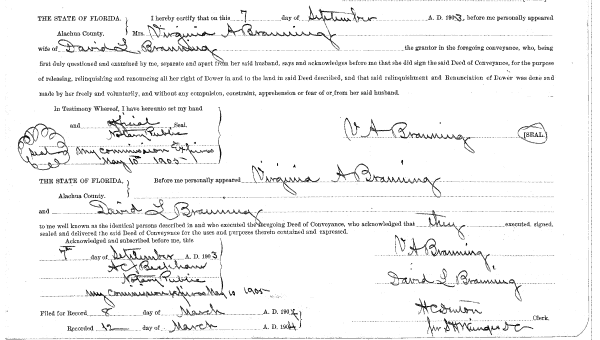 THE STATE OF FLORIDA, I hereby certify that on this 7 day of September A. D. 1903, before me personally appeared
Alachua County. Mrs. Virginia A Branning
wife of David L. Branning the grantor in the foregoing conveyance, who, being
first duly questioned and examined by me, separate and apart from her said husband, says and acknowledges before me that she did sign the said Deed of Conveyance, for the purpose
of releasing, relinquishing and renouncing all her right of Dower in and to the land in said Deed described, and that said relinquishment and Renunciation of Dower was done and
made by her freely and voluntarily, and without any compulsion, constraint, apprehension or fear of or from her said husband.
In Testimony Whereof, I have hereunto set my hand
and official Seal.
Notary Public
My Commission Expires
May 10th 1905
V A Branning (SEAL
THE STATE OF FLORIDA, Before me personally appeared Virginia A Branning
Alachua County.
and David L Branning
to me well known as the identical persons described in and who executed the foregoing Deed of Conveyance, who acknowledged that they executed, signed,
sealed and delivered the said Deed of Conveyance for the uses and purposes therein contained and expressed.
Acknowledged and subscribed before me, this
7th day of September A. D. 1903
A C J Beckham
Notary Public
My Commission Expires May 10 1905
V A Branning
David L Branning
Filed for Record 8 day of March A. D. 190
Recorded 12 day of March A. D. 1904
H C Denton
Clerk.
D C